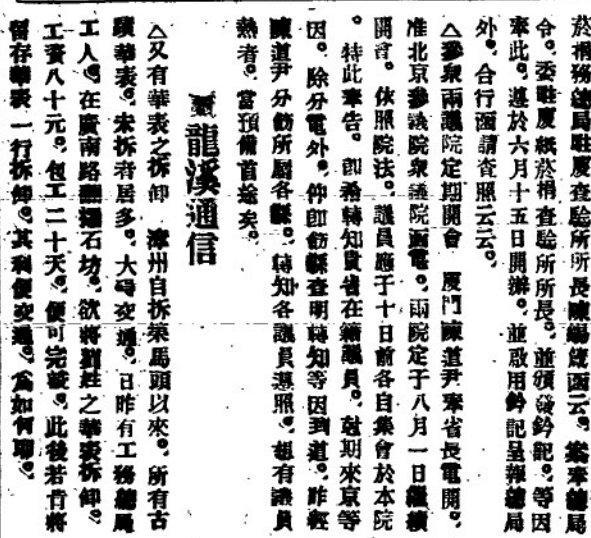 菸捐務總局駐廈查驗所所長陳錫箴函云。案奉總局
令。委駐廈紙菸捐查驗所所長。並頒發鈐記。等因
奉此。遵於六月十五日開辦。並啟用鈐記呈報總局
外。合行函請查照云云。
△參衆兩議院定期開會　廈門陳道尹奉省長電開。
准北京參議院衆議院函電。兩院定于八月一日繼續
開會。依照院法。議員應于十日前各自集會於本院
。特此奉告。即希轉知貴省在籍議員。尅期來京等
因。除分電外。仰即飭縣查明轉知等因到道。昨經
陳道尹分飭所屬各縣。轉知各議員遵照。想有議員
熱者。當預備首途矣。
龍溪通信
△又有華表之拆卸　漳州自拆築馬頭以來。所有古
蹟華表。未拆者居多。大碍交通。日昨有工務總局
工人。在廣南路石坊。欲將姓之華表拆卸。
工資八十元。包工二十天。便可完竣。此後若肯將
留存華表一行拆卸。其利便交通。爲如何耶。